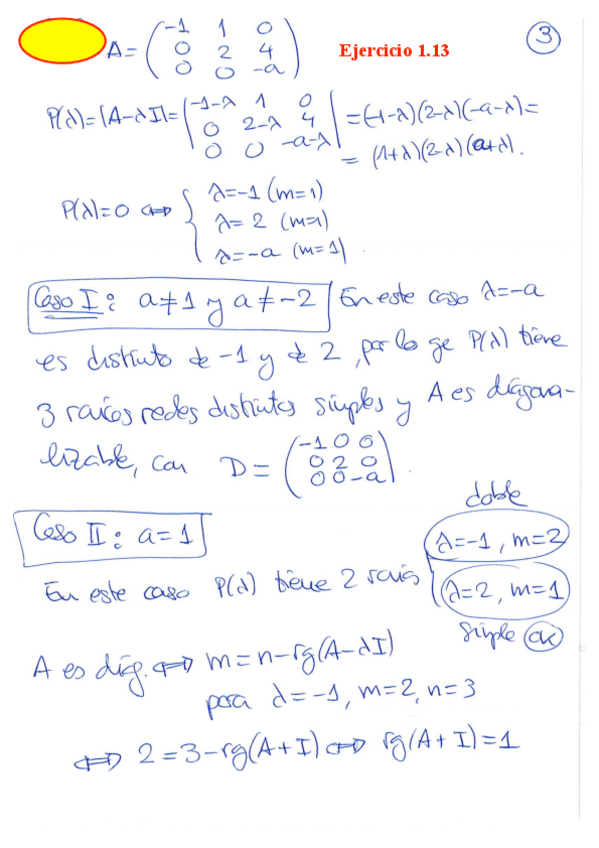 A = ( -1 1 0 ; 0 2 4 ; 0 0 -a ) Ejercicio 1.13 3
P(λ)=|A-λI|= | -1-λ 1 0 ; 0 2-λ 4 ; 0 0 -a-λ | =(-1-λ)(2-λ)(-a-λ)=
= (1+λ)(2-λ)(a+λ).
P(λ)=0 ⇔ { λ=-1 (m=1)
λ= 2 (m=1)
λ=-a (m=1).
Caso I: a≠1 y a≠-2 En este caso λ=-a
es distinto de -1 y de 2, por lo que P(λ) tiene
3 raíces reales distintas simples y A es diagona-
lizable, con D = ( -1 0 0 ; 0 2 0 ; 0 0 -a ).
doble
Caso II: a=1
λ=-1, m=2
En este caso P(λ) tiene 2 raíces
λ=2, m=1
simple ok
A es diag. ⇔ m=n-rg(A-λI)
para λ=-1, m=2, n=3
⇔ 2=3-rg(A+I) ⇔ rg(A+I)=1